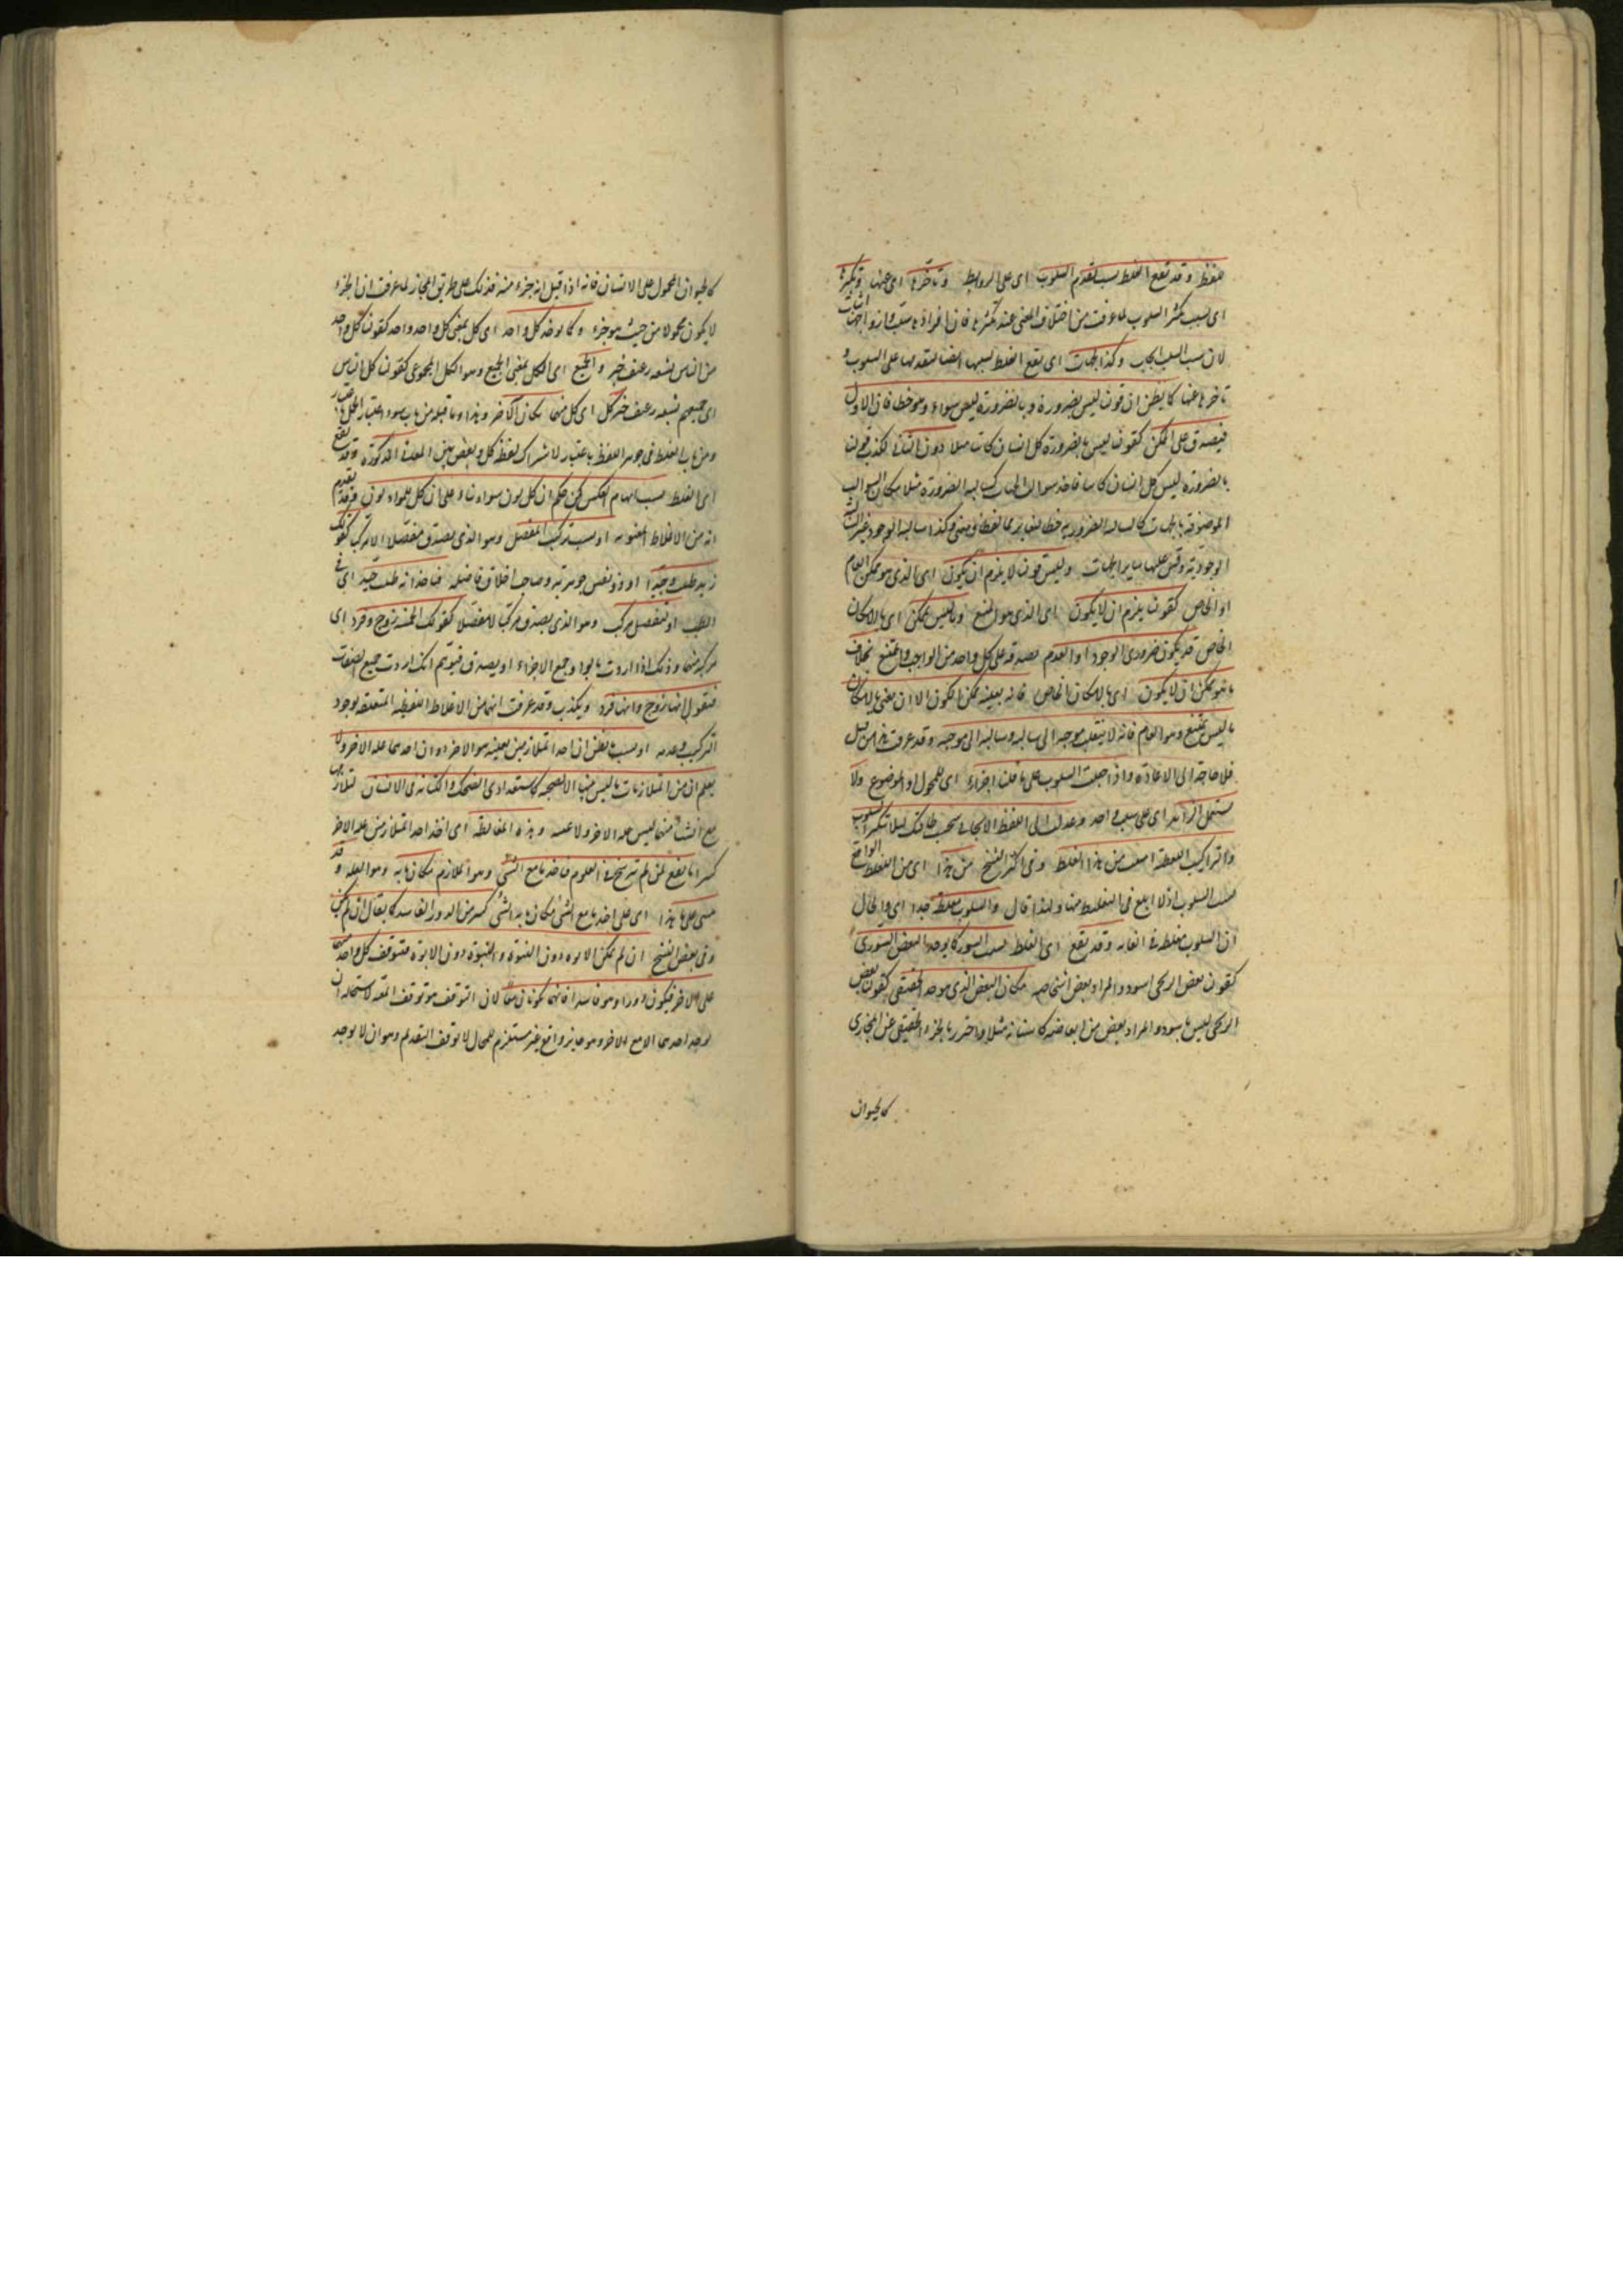 فقط وقد يقع الغلط بسبب تقدم السلوب اى على الروابط وتأخرها اى عنها وتكثرها
اى بسبب تكثر السلوب لما عرفت من اختلاف المعنى عند تكثرها فان افرادها سلب وازواجها اثبات
لان سلب السلب ايجاب وكذا الجهات اى يقع الغلط بسببها ايضا لتقدمها على السلوب و
تأخرها عنها كما يظن ان قولنا ليس بضرورة وبالضرورة ليس سواء وهو خطا فان الاول
فيصدق على الممكن كقولنا ليس بالضرورة كل انسان كاتب مثلا دون الثانى لكذب قولنا
بالضرورة ليس كل انسان كاتبا فاخذ سوالب الجهات كسالبة الضرورة مثلا مكان السوالب
الموصوفة بالجهات كالسالبة الضرورية خطا لتغايرهما لفظا ومعنى وكذا سالبة الوجود غير السالبة
الوجودية وقس عليها ساير الجهات وليس قولنا لا يلزم ان يكون اى الذى هو ممكن العام
او الخاص كقولنا يلزم ان لا يكون اى الذى هو الممتنع وما ليس بممكن اى بالامكان
الخاص قد يكون ضرورى الوجود او العدم لصدقه على كل واحد من الواجب والممتنع بخلاف
ما هو ممكن ان لا يكون اى بالامكان الخاص فانه بعينه ممكن الكون الا ان يعنى بالامكان
ما ليس بممتنع وهو العام فانه لا ينقلب موجبه الى سالبه وسالبه الى موجبه وقد عرفت هذا من قبل
فلا حاجة الى الاعادة واذا جعلت السلوب على ما قلنا اجزاء اى للمحمول او الموضوع ولا
تستعمل الزائد اى على سلب واحد وعدلت الى اللفظ الايجابى بحسب طاقتك ليلا تتكثر السلوب
والتراكيب اللفظية امنت من هذا الغلط وفى اكثر النسخ من هذا اى من الغلط الواقع
بسبب السلوب اذ لا ابلغ فى التغليط منها ولهذا قال والسلوب مغلطة جدا اى والحال
ان السلوب مغلطة فى الغاية وقد يقع اى الغلط بسبب السور كما يوخذ البعض السورى
كقولنا بعض الزنجى اسود والمراد بعض اشخاصه مكان البعض الذى هو جزء الحقيقى كقولنا بعض
الزنجى ليس باسود والمراد بعض من ابعاضه كاسنانه مثلا واحترز بالجزء الحقيقى عن المجازى
كالحيوان
كالحيوان المحمول على الانسان فانه اذا قيل انه جزء منه فذلك على طريق المجاز لما عرفت ان الجزء
لا يكون محمولا من حيث هو جزء وكما يوخذ كل واحد اى كل بمعنى كل واحد واحد كقولنا كل واحد
من الناس يشبعه رغيف خبز والجميع اى الكل بمعنى الجميع وهو الكل المجموعى كقولنا كل الناس
اى جميعهم يشبعه رغيف خبز كل اى كل منهما مكان الآخر وهذا وما قبله من باب سوء اعتبار الحمل باعتبار
ومن باب الغلط فى جوهر اللفظ باعتبار الاشتراك لفظ كل وبعض بين المعانى المذكورة وقد يقع
اى الغلط بسبب ايهام العكس كمن حكم ان كل لون سواد بناء على ان كل سواد لون فقد تقدم
انه من الاغلاط المعنوية او بسبب تركيب المفصل وهو الذى يصدق مفصلا لا مركبا كقولك
زيد طبيب وجيد اى ذو نفس جوهرية وصاحب اخلاق فاضلة فياخذ انه طبيب جيد اى فى
الطب او تفصيل مركب وهو الذى يصدق مركبا لا مفصلا كقولك الخمسة زوج وفرد اى
مركبة منهما وذلك اذا اردت بالواو جمع الاجزاء اذ يصدق فيتوهم انك اردت جمع الصفات
فتقول انها زوج وانها فرد ويكذب وقد عرفت انهما من الاغلاط اللفظية المتعلقة بوجود
التركيب وعدمه او بسبب ظن ان احد المتلازمين بعينه هو الاخر او ان احدهما علة الاخر ولا
يعلم ان من المتلازمات ما ليس بينها الا الصحبة كاستعدادى الضحك والكتابة فى الانسان لتلازمهما
مع ان شيئا منهما ليس علة الاخر ولا عينه وهذه المغالطة اى اخذ احد المتلازمين علة الاخر
كثيرا ما يقع لمن لم يترسخ فى العلوم فياخذ ما مع الشئ وهو الملازم مكان ما به وهو العلة وقد
يبتنى على هذا اى على اخذ ما مع الشئ مكان ما به الشئ كثير من الدور الفاسد كما يقال ان لم يكن
وفى بعض النسخ ان لم تكن الابوة دون البنوة والبنوة دون الابوة فتتوقف كل واحد منهما
على الاخر فيكون دورا وهو فاسد فانهما يكونان معا لان التوقف هو توقف المعية لاستحالة ان
يوجد احدهما الا مع الاخر وهو جايز واقع غير مستلزم للمحال لا توقف التقدم وهو ان لا يوجد